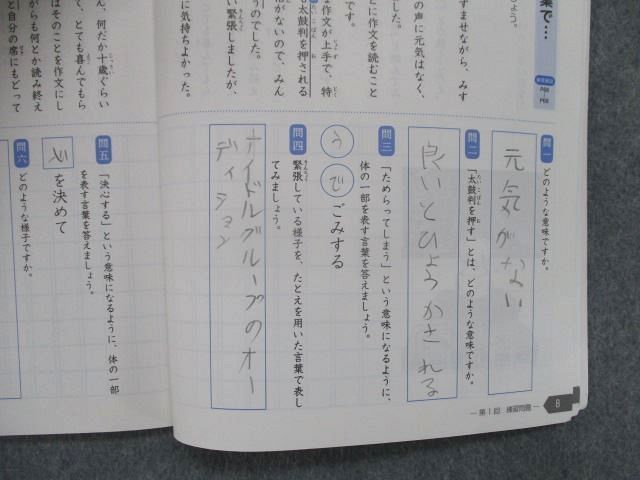 業で…
P66
P68
しょう。
すませながら、みす
の声に元気はなく、
した。
とに作文を読むこと
です。
作文が上手で、特
も太鼓判を押される
ながないので、みん
うのでした。
い緊張しましたが、
に気持ちよかった。
ん、何だか十歳ぐらい
て、とても喜んでもら
はそのことを作文にし
がらも何とか読み終え
と自分の席にもどって
問一 どのような意味ですか。
元気がない
問二 「太鼓判を押す」とは、どのような意味ですか。
良いとひょうかされる
問三 「ためらってしまう」という意味になるように、
体の一部を表す言葉を答えましょう。
うでごみする
問四 緊張している様子を、たとえを用いた言葉で表し
てみましょう。
オイドルグループのオー
ディション
問五 「決心する」という意味になるように、体の一部
を表す言葉を答えましょう。
心を決めて
問六 どのような様子ですか。
― 第1回 練習問題 ―
8